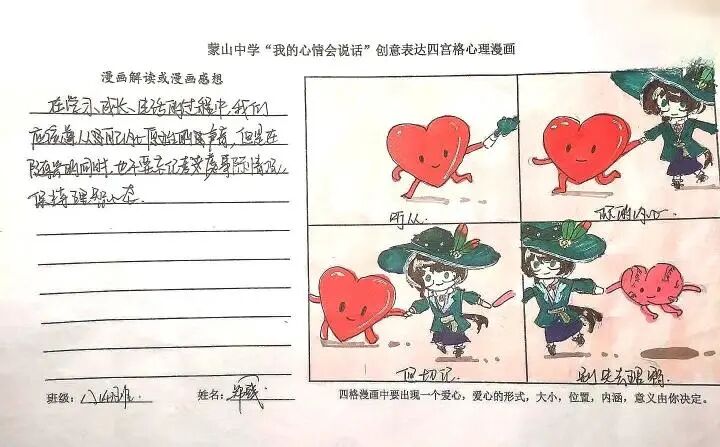 蒙山中学“我的心情会说话”创意表达四宫格心理漫画
漫画解读或漫画感想
在学习、成长、生活的过程中,我们
应该遵从自己内心原始的声音,但是在
的同时,也不要忘记考虑事实情况,
保持理智心态.
听从.
你的内心
但切记.
别失去理智.
班级:
姓名:
四格漫画中要出现一个爱心,爱心的形式,大小,位置,内涵,意义由你决定。